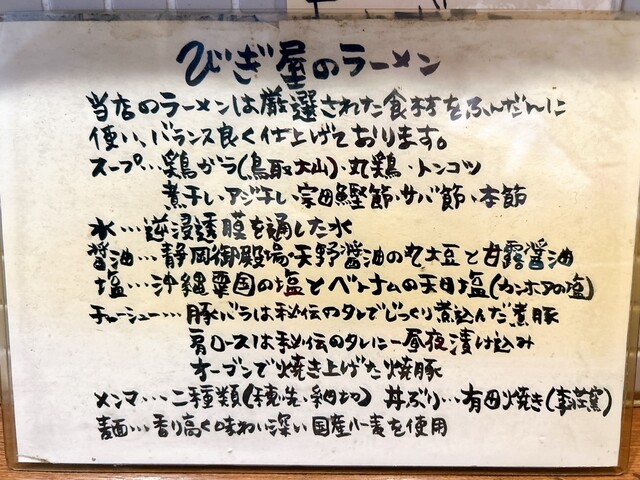 びぎ屋のラーメン
当店のラーメンは厳選された食材をふんだんに
使い、バランス良く仕上げております。
スープ…鶏ガラ(鳥取大山)・丸鶏・トンコツ
煮干し・アジ干し・宗田鰹節・サバ節・本節
水…逆浸透膜を通した水
醤油…静岡御殿場・天野醤油の丸大豆と甘露醤油
塩…沖縄粟国の塩とベトナムの天日塩(カンホアの塩)
チャーシュー…豚バラは秘伝のタレでじっくり煮込んだ煮豚
肩ロースは秘伝のタレに一昼夜漬け込み
オーブンで焼き上げた焼豚
メンマ…二種類(穂先・細切) 丼ぶり…有田焼き(
麺…香り高く味わい深い国産小麦を使用